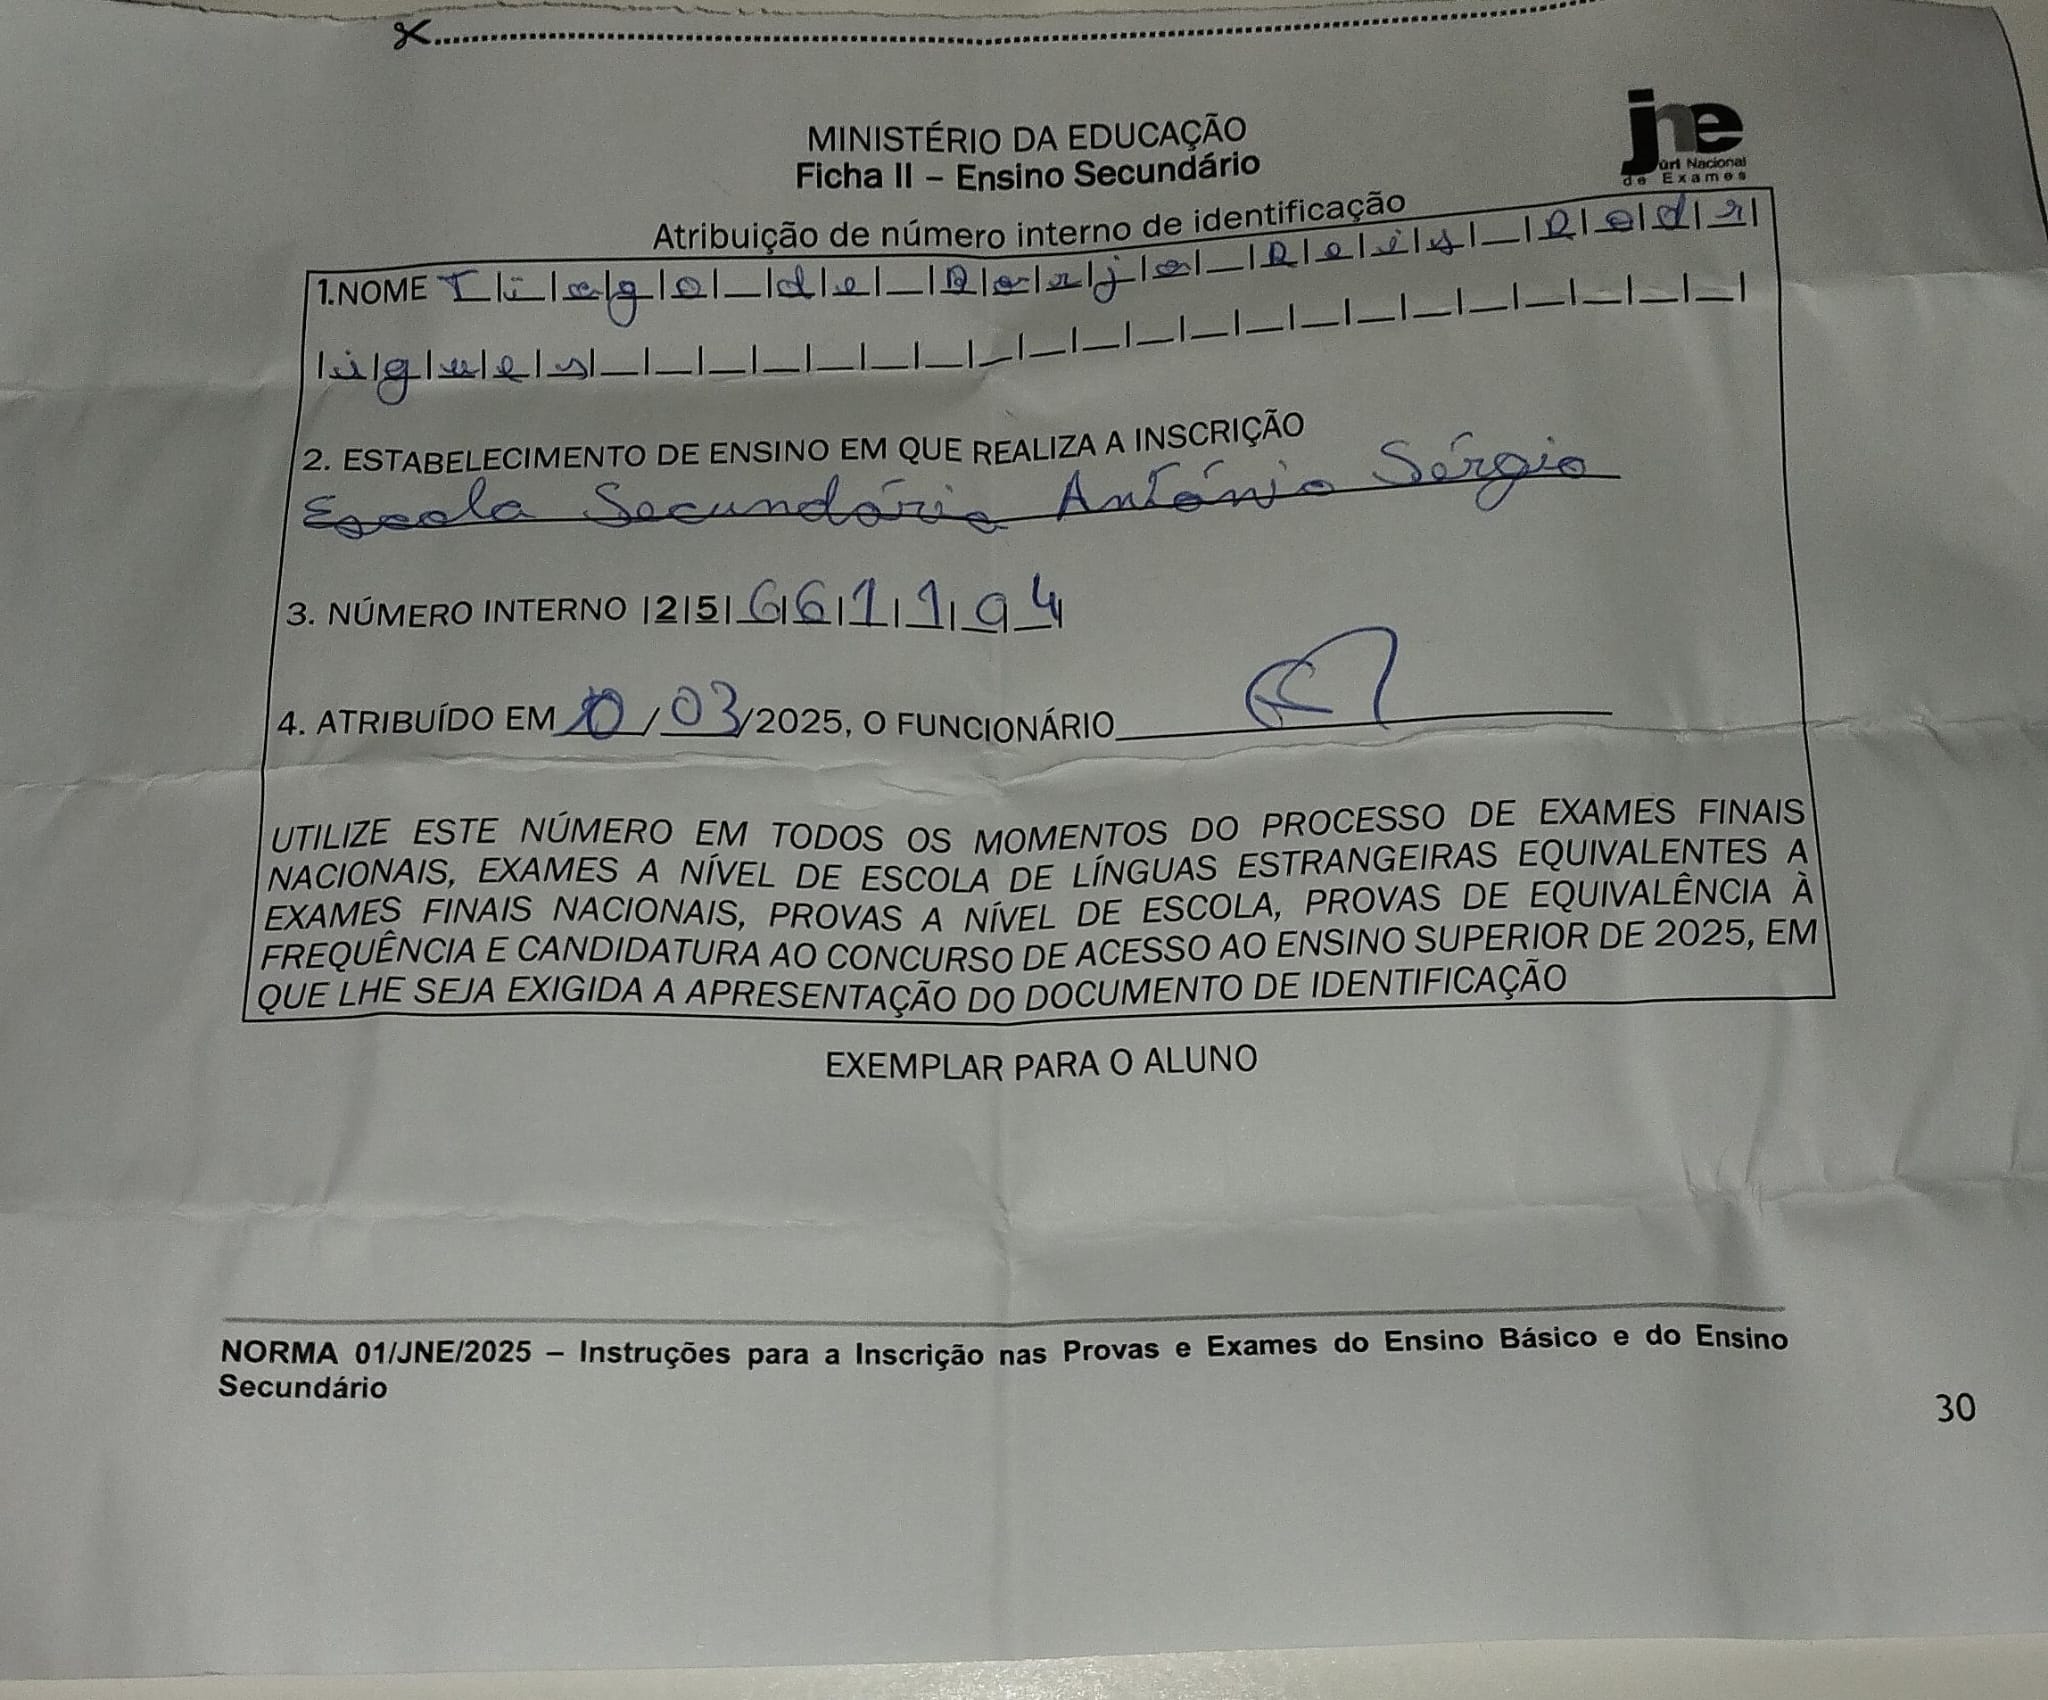 MINISTÉRIO DA EDUCAÇÃO
Ficha II – Ensino Secundário
jne
Júri Nacional
de Exames
Atribuição de número interno de identificação
1.NOME T|i|a|g|o|_|d|e|_|B|o|r|j|a|_|R|e|i|s|_|R|o|d|r|
|i|g|u|e|s|_|_|_|_|_|_|_|_|_|_|_|_|_|_|_|_|_|_|_|_|_|
2. ESTABELECIMENTO DE ENSINO EM QUE REALIZA A INSCRIÇÃO
Escola Secundária António Sérgio
3. NÚMERO INTERNO |2|5|6|6|1|1|9|4|
4. ATRIBUÍDO EM 10/03/2025, O FUNCIONÁRIO
UTILIZE ESTE NÚMERO EM TODOS OS MOMENTOS DO PROCESSO DE EXAMES FINAIS
NACIONAIS, EXAMES A NÍVEL DE ESCOLA DE LÍNGUAS ESTRANGEIRAS EQUIVALENTES A
EXAMES FINAIS NACIONAIS, PROVAS A NÍVEL DE ESCOLA, PROVAS DE EQUIVALÊNCIA À
FREQUÊNCIA E CANDIDATURA AO CONCURSO DE ACESSO AO ENSINO SUPERIOR DE 2025, EM
QUE LHE SEJA EXIGIDA A APRESENTAÇÃO DO DOCUMENTO DE IDENTIFICAÇÃO
EXEMPLAR PARA O ALUNO
NORMA 01/JNE/2025 – Instruções para a Inscrição nas Provas e Exames do Ensino Básico e do Ensino
Secundário
30